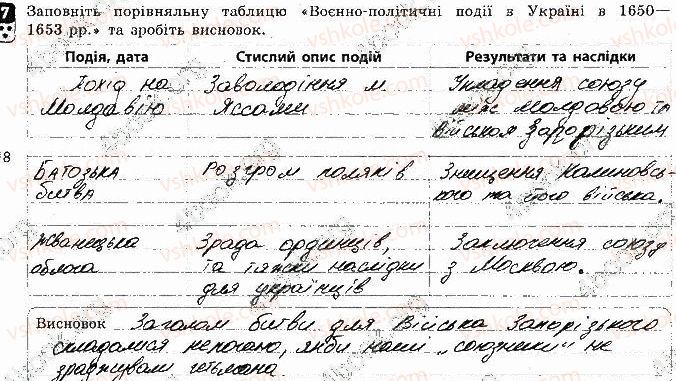 7 Заповніть порівняльну таблицю «Воєнно-політичні події в Україні в 1650—
1653 рр.» та зробіть висновок.
Подія, дата Стислий опис подій Результати та наслідки
Похід на Заволодіння м. Укладення союзу
Молдавію Яссами між молдовою та
військом Запорізьким
8
Батозька Розгром поляків Знищення Калиновсь-
битва кого та його війська.
Жванецька Зрада ординців, Заключення союзу
облога та тяжки наслідки з Москвою.
для українців
Висновок Загалом битви для Війська Запорізького
складалися непогано, якби наші „союзники" не
зраджували гетьмана